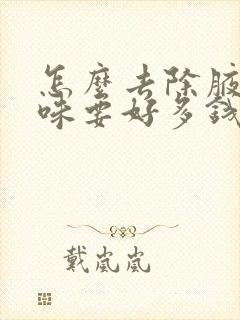 怎麼去除腋
味要好多錢
戴嵐嵐